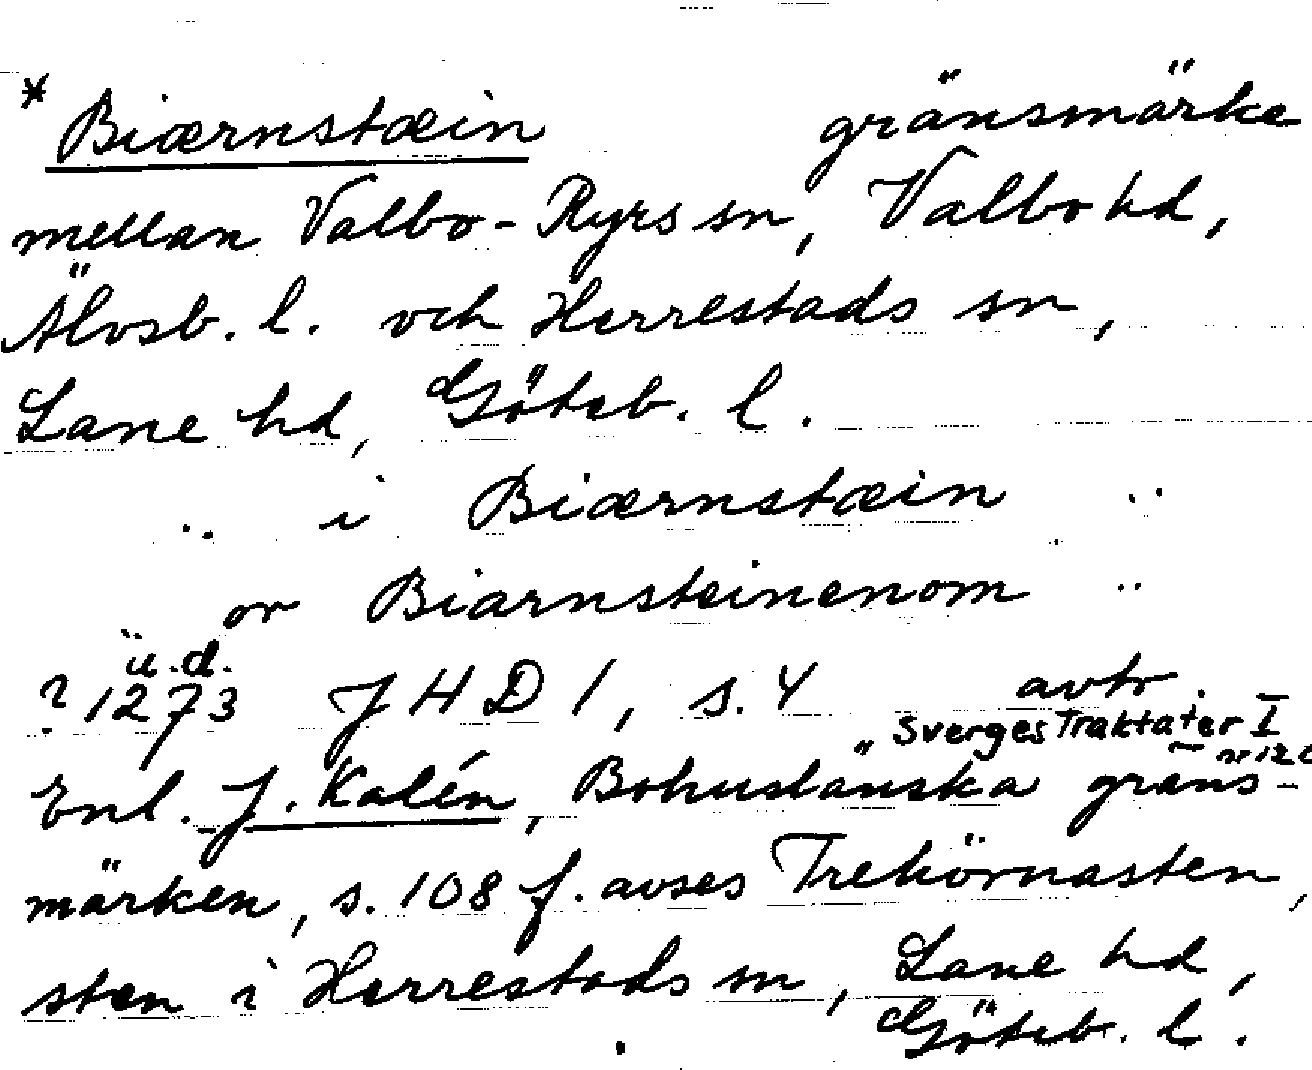 * Biærnstæin gränsmärke
mellan Valbo-Ryrs sn, Valbo hd,
Älvsb. l. och Herrestads sn,
Lane hd, Göteb. l.
.. i Biærnstæin ..
or Biarnsteinenom ..
u.d.
? 1273 JHD 1, s. 4 avtr.
Sverges Traktater I
Enl. J. Kalén, Bohuslänska gräns-
märken, s. 108 f. avses Trehörnasten,
sten i Herrestads sn, Lane hd,
Göteb. l.